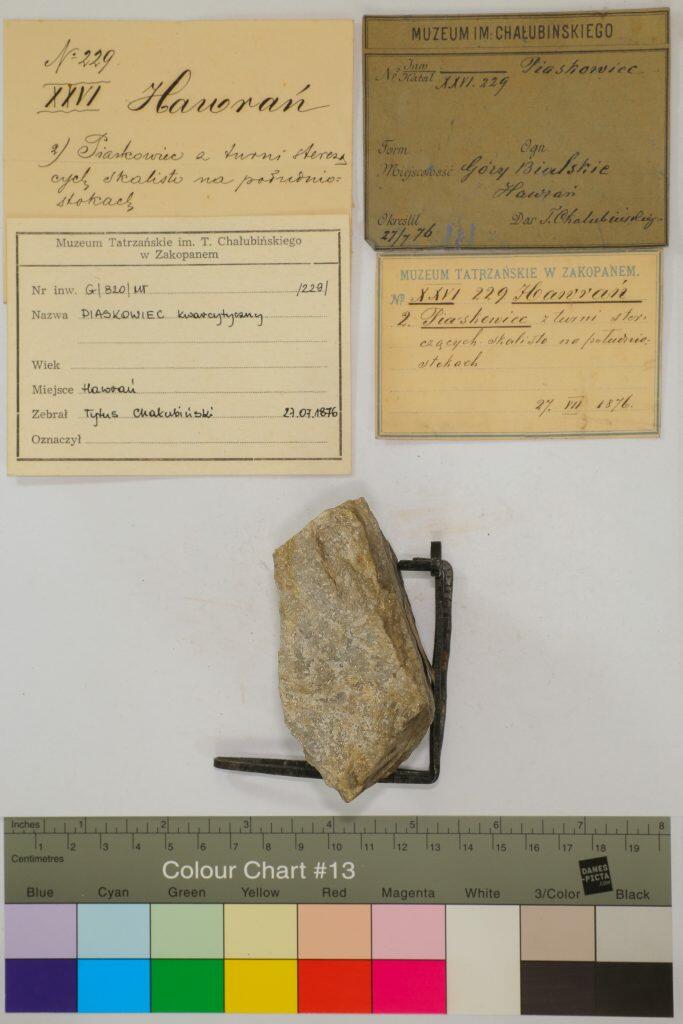 Nº 229.
XXVI Hawrań
2) Piaskowiec z turni stereza
cych skalisto na południo=
stokach
MUZEUM IM. CHAŁUBIŃSKIEGO
Nº Inw Katal XXVI. 229 Piaskowiec
Form Ogn
Miejscowość Góry Bialskie
Hawrań
Określił Dar T. Chałubińskiego
27/7 76
Muzeum Tatrzańskie im. T. Chałubińskiego
w Zakopanem
Nr inw. G/820/MT /229/
Nazwa PIASKOWIEC kwarcytyczny
Wiek
Miejsce Hawrań
Zebrał Tytus Chałubiński 27.07.1876
Oznaczył
MUZEUM TATRZAŃSKIE W ZAKOPANEM.
Nº XXVI 229 Hawrań
2. Piaskowiec z turni ster-
czących skalisto na południo-
stokach
27. VII 1876.
Inches 1 2 3 4 5 6 7 8
1 2 3 4 5 6 7 8 9 10 11 12 13 14 15 16 17 18 19
Centimetres
Colour Chart #13
DANES
-PICTA
.COM
Blue Cyan Green Yellow Red Magenta White 3/Color Black